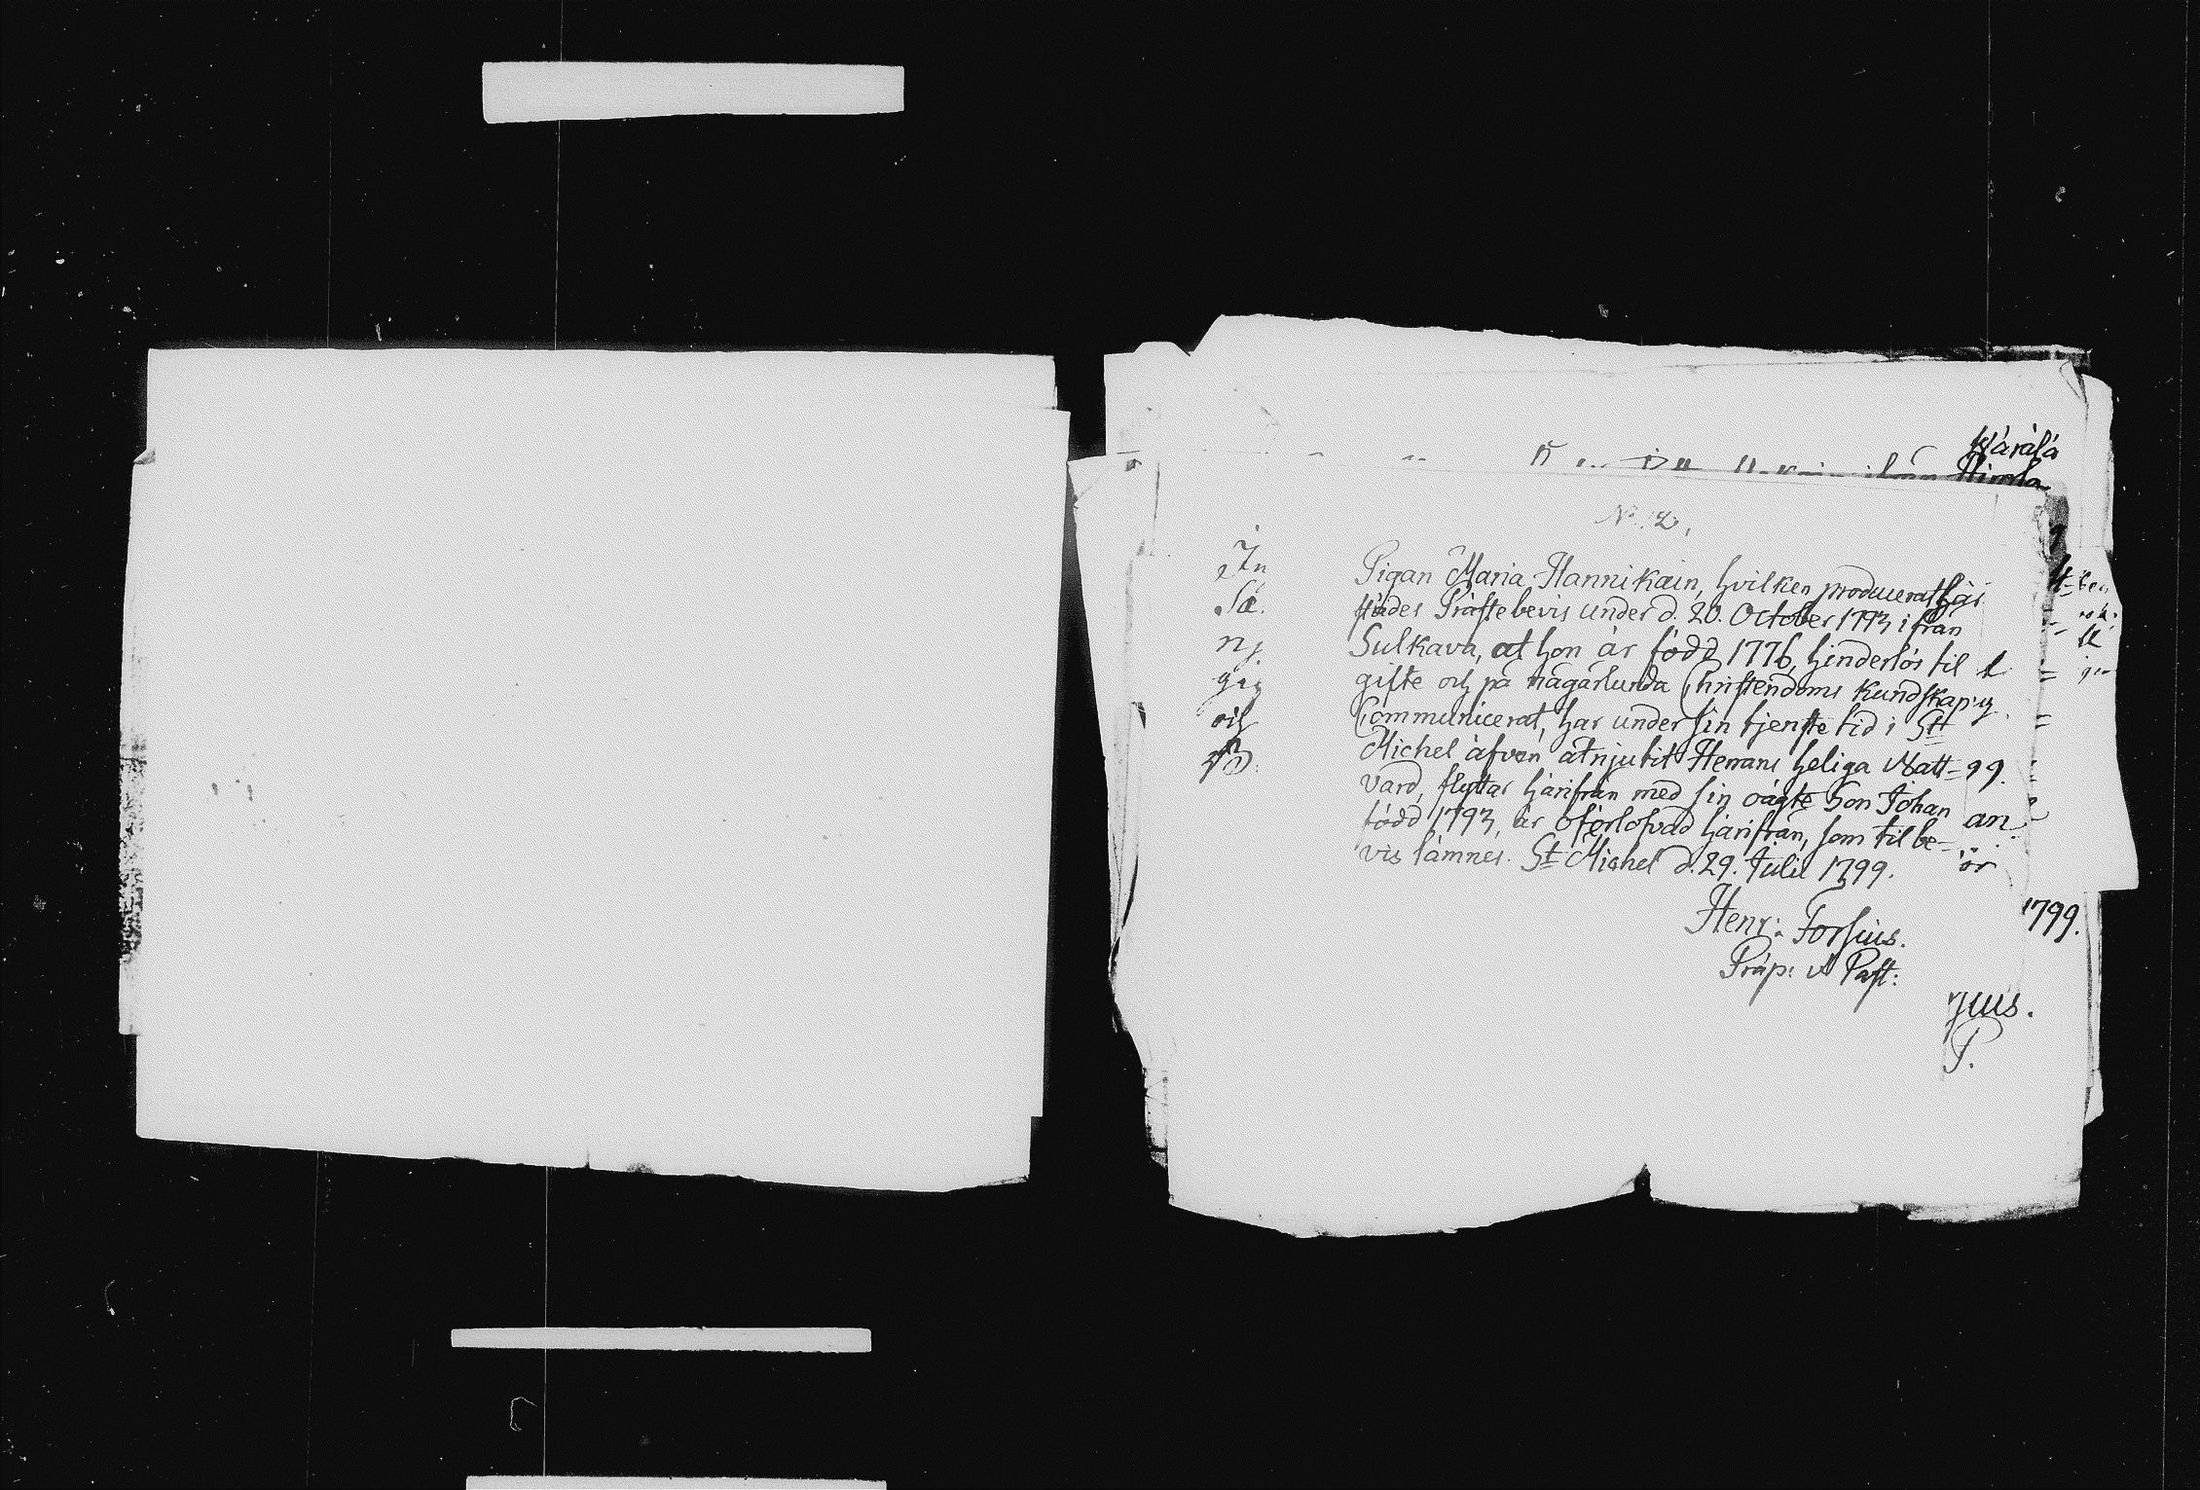 Wärälä
Hirola
N:o 2,
Pigan Maria Hannikain, hvilken producerat här
städes Prästebevis under d. 20. October 1793 ifrån
Sulkava, at hon är född 1776, hinderlös til
gifte och på någårlunda Christendoms kundskap
Communicerat, har under sin tjenste tid i S:t
Michel äfven åtnjutit Herrans heliga Natt-
vard, flyttar härifrån med sin oägte Son Johan
född 1793, är oförlofvad härifrån, som til be-
vis lämnes. S:t Michel d. 29. Julii 1799.
Henr: Forsius.
Präp: & Past:
In
Sæ.
och
99.
an
ör
1799.
P.